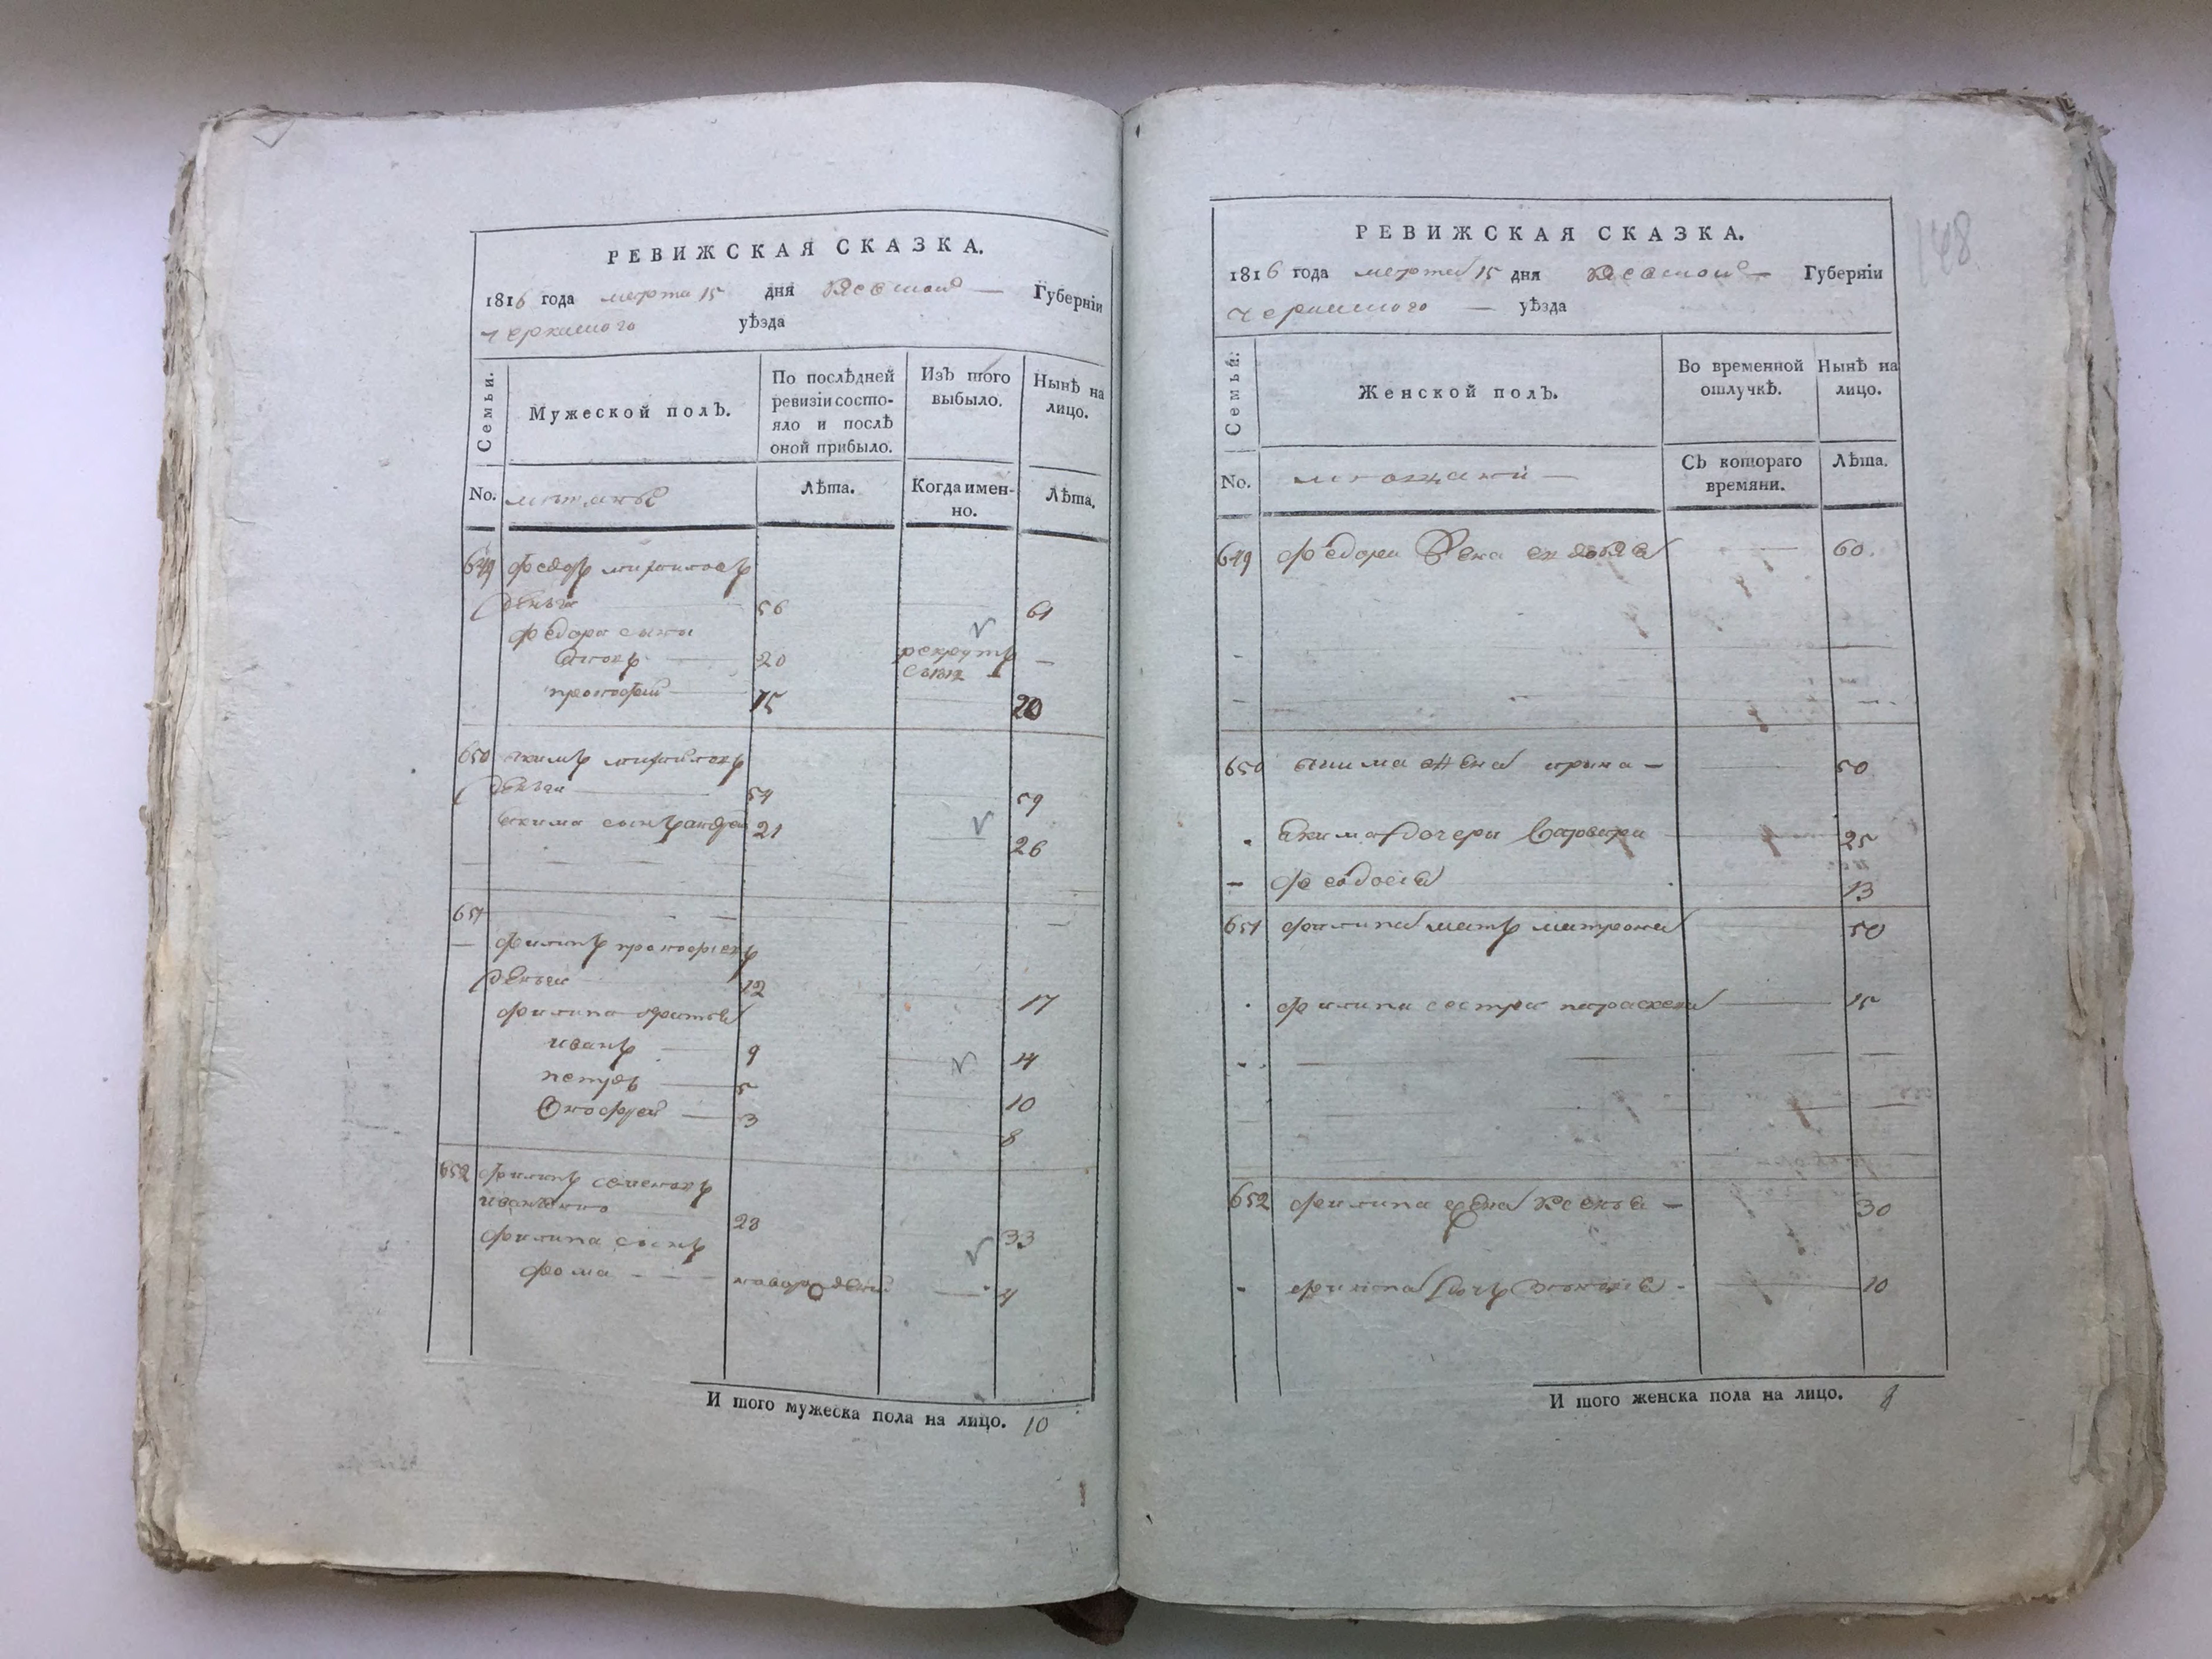 РЕВИЖСКАЯ СКАЗКА.
1816 года марта 15 дня Киевской Губерніи
Черкаского уѣзда
Семьи.
Мужеской полъ.
По послѣдней ревизіи состояло и послѣ оной прибыло.
Изъ того выбыло.
Нынѣ на лицо.
No.
Лѣта.
Когда именно.
Лѣта.
649 Федоръ
56 61
Федора сыны
20 рекрутъ —
15 20
650 Якимъ
54 59
Якима сынъ андрей 21 26
651
Филипъ прокофіевъ
12 17
Филипа братья
иванъ 9 14
петръ 5 10
Онофрей 3 8
652 Филипъ семеновъ
иваненко 28 33
Филипа сынъ
фома новорожденъ 4
И того мужеска пола на лицо. 10
148
РЕВИЖСКАЯ СКАЗКА.
1816 года марта 15 дня Киевской Губерніи
Черкаского уѣзда
Семьи.
Женской полъ.
Во временной отлучкѣ.
Нынѣ на лицо.
No.
Съ котораго времяни.
Лѣта.
649 Федора жена 60.
650 жена ирина 50
Якима дочери Варвара 25
Феодосія 13
651 Филипа мать матрона 50
Филипа сестра параскева 15
652 Филипа жена Ксенья 30
Филипа дочь 10
И того женска пола на лицо. 8